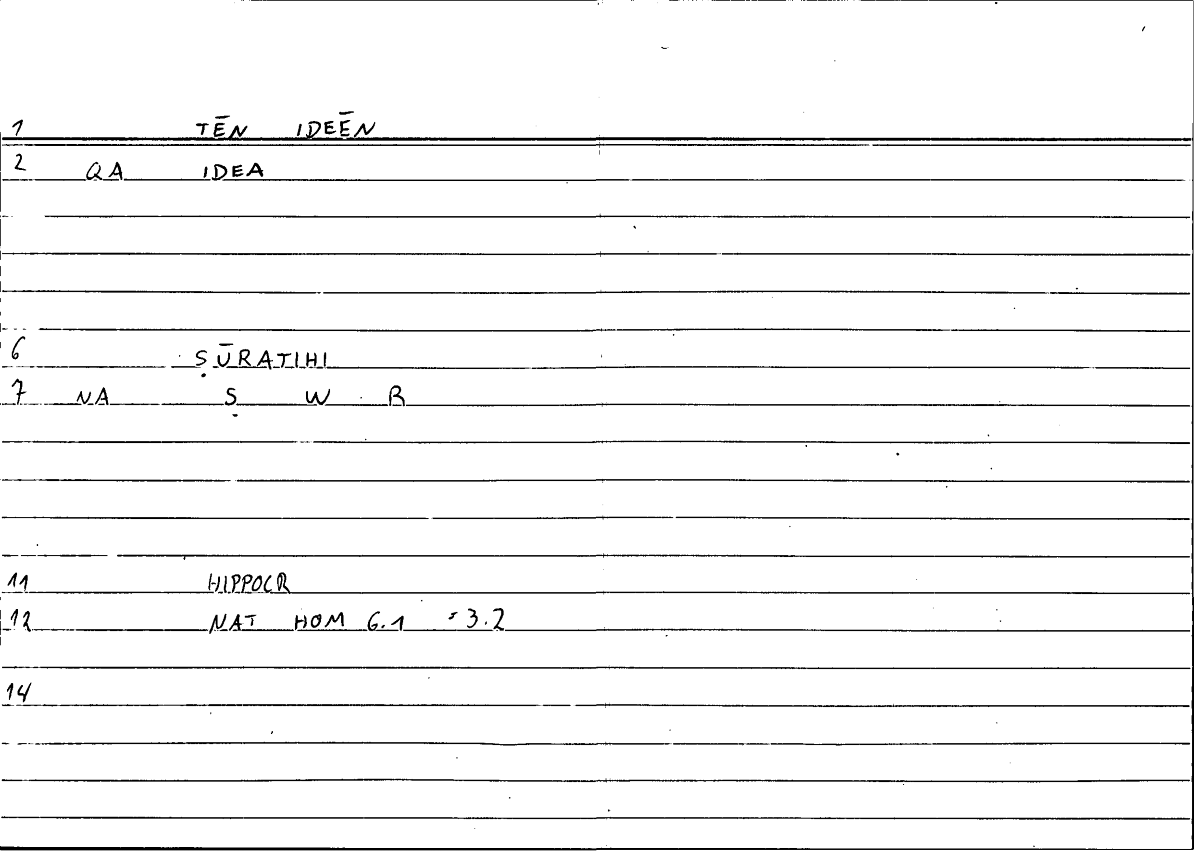 1 TĒN IDEĒN
2 QA IDEA
6 ṢŪRATIHI
7 NA Ṣ W R
11 HIPPOCR
12 NAT HOM 6.1 = 3.2
14